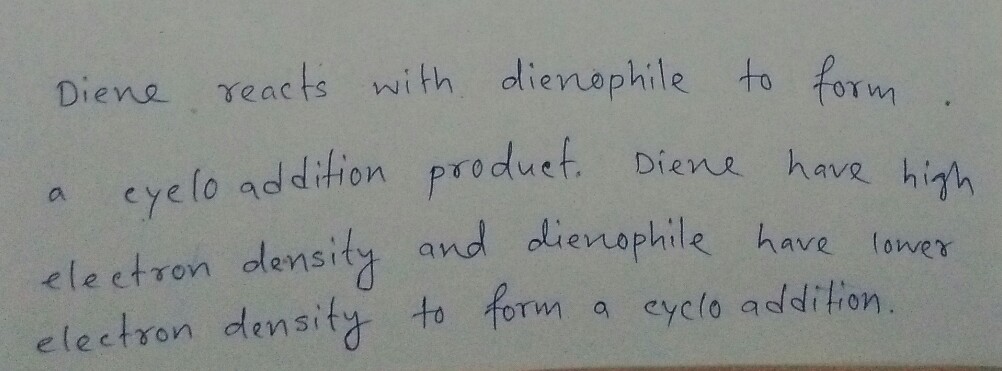 Diene reacts with dienophile to form .
a cyclo addition product. Diene have high
electron density and dienophile have lower
electron density to form a cyclo addition.